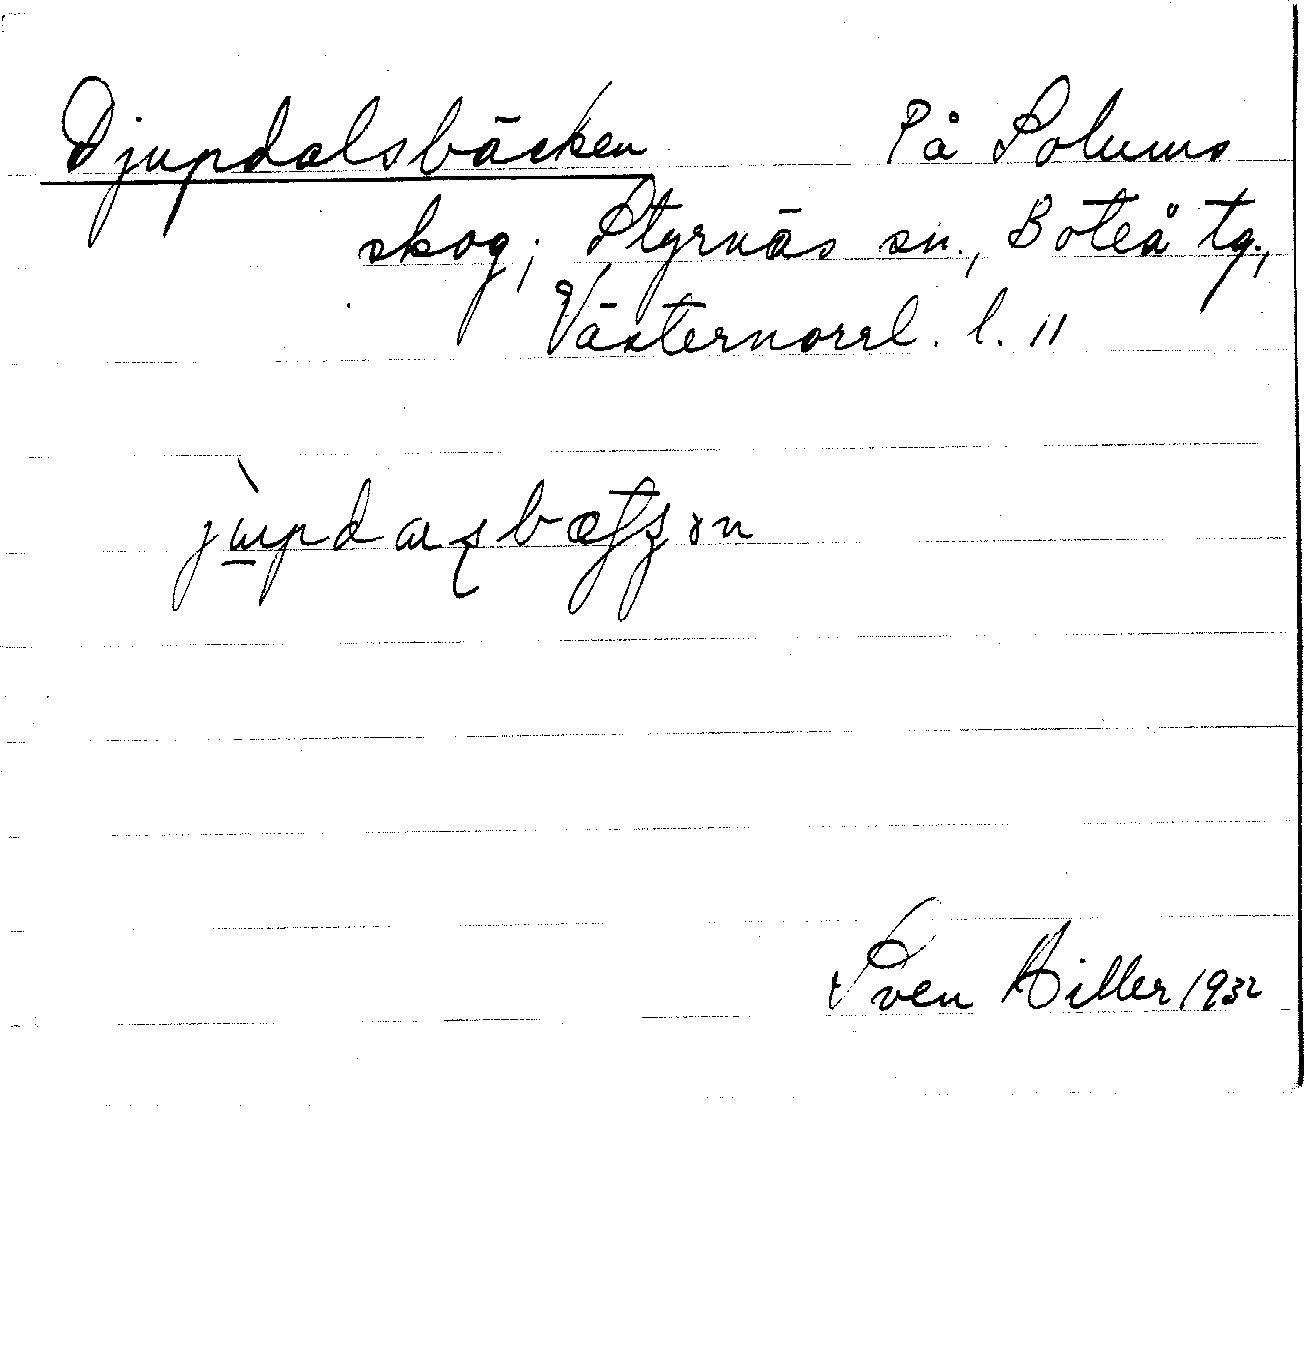 Djupdalsbäcken På Solums
skog; Styrnäs sn., Boteå tg.,
Västernorrl. l. 11
Sven Hiller 1932